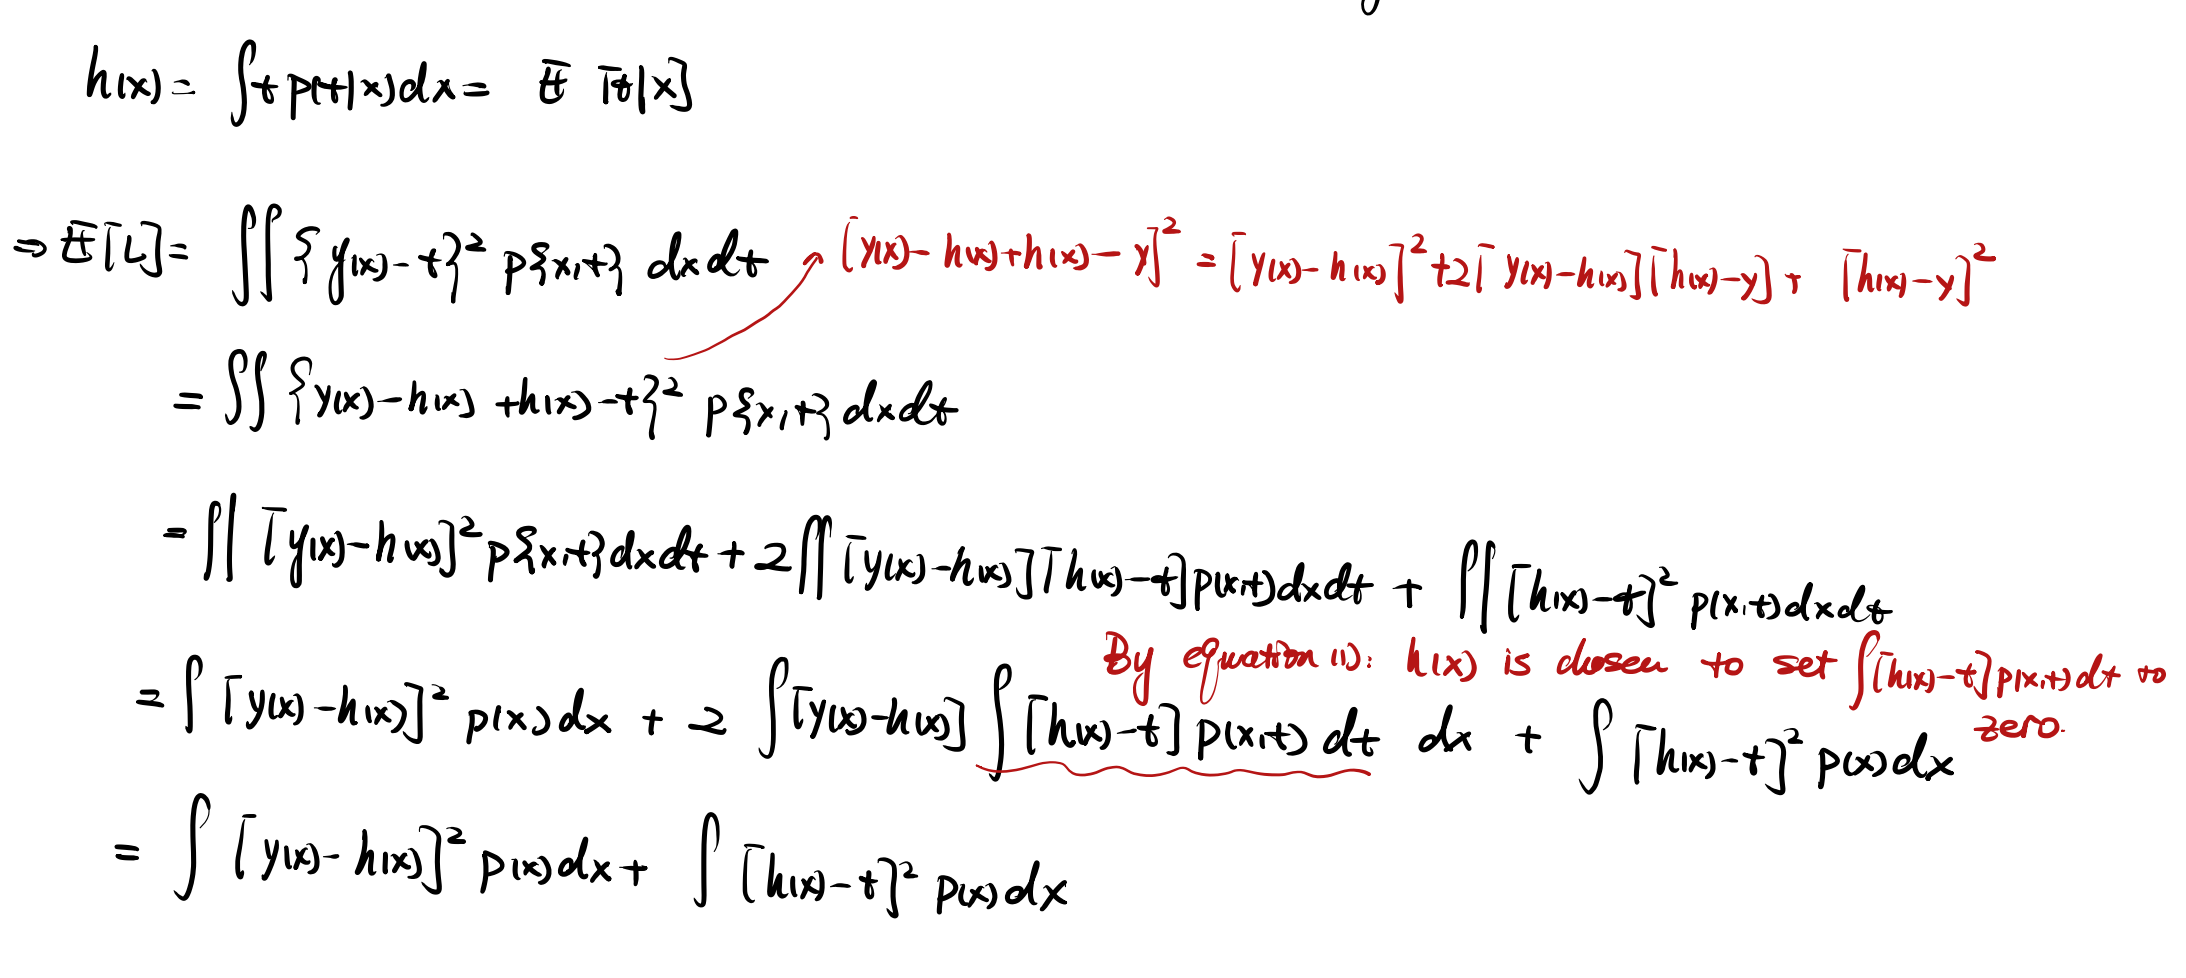 h(x) = ∫ t p(t|x) dx = 𝔼 [t|x]
⇒ 𝔼[L] = ∫∫ {y(x) - t}² p{x,t} dx dt
[y(x) - h(x) + h(x) - y]² = [y(x) - h(x)]² + 2[y(x) - h(x)][h(x) - y] + [h(x) - y]²
= ∫∫ {y(x) - h(x) + h(x) - t}² p{x,t} dx dt
= ∫∫ [y(x) - h(x)]² p{x,t} dx dt + 2 ∫∫ [y(x) - h(x)][h(x) - t] p(x,t) dx dt + ∫∫ [h(x) - t]² p(x,t) dx dt
By equation (1): h(x) is chosen to set ∫[h(x) - t] p(x,t) dt to
zero.
= ∫ [y(x) - h(x)]² p(x) dx + 2 ∫ [y(x) - h(x)] ∫ [h(x) - t] p(x,t) dt dx + ∫ [h(x) - t]² p(x) dx
= ∫ [y(x) - h(x)]² p(x) dx + ∫ [h(x) - t]² p(x) dx